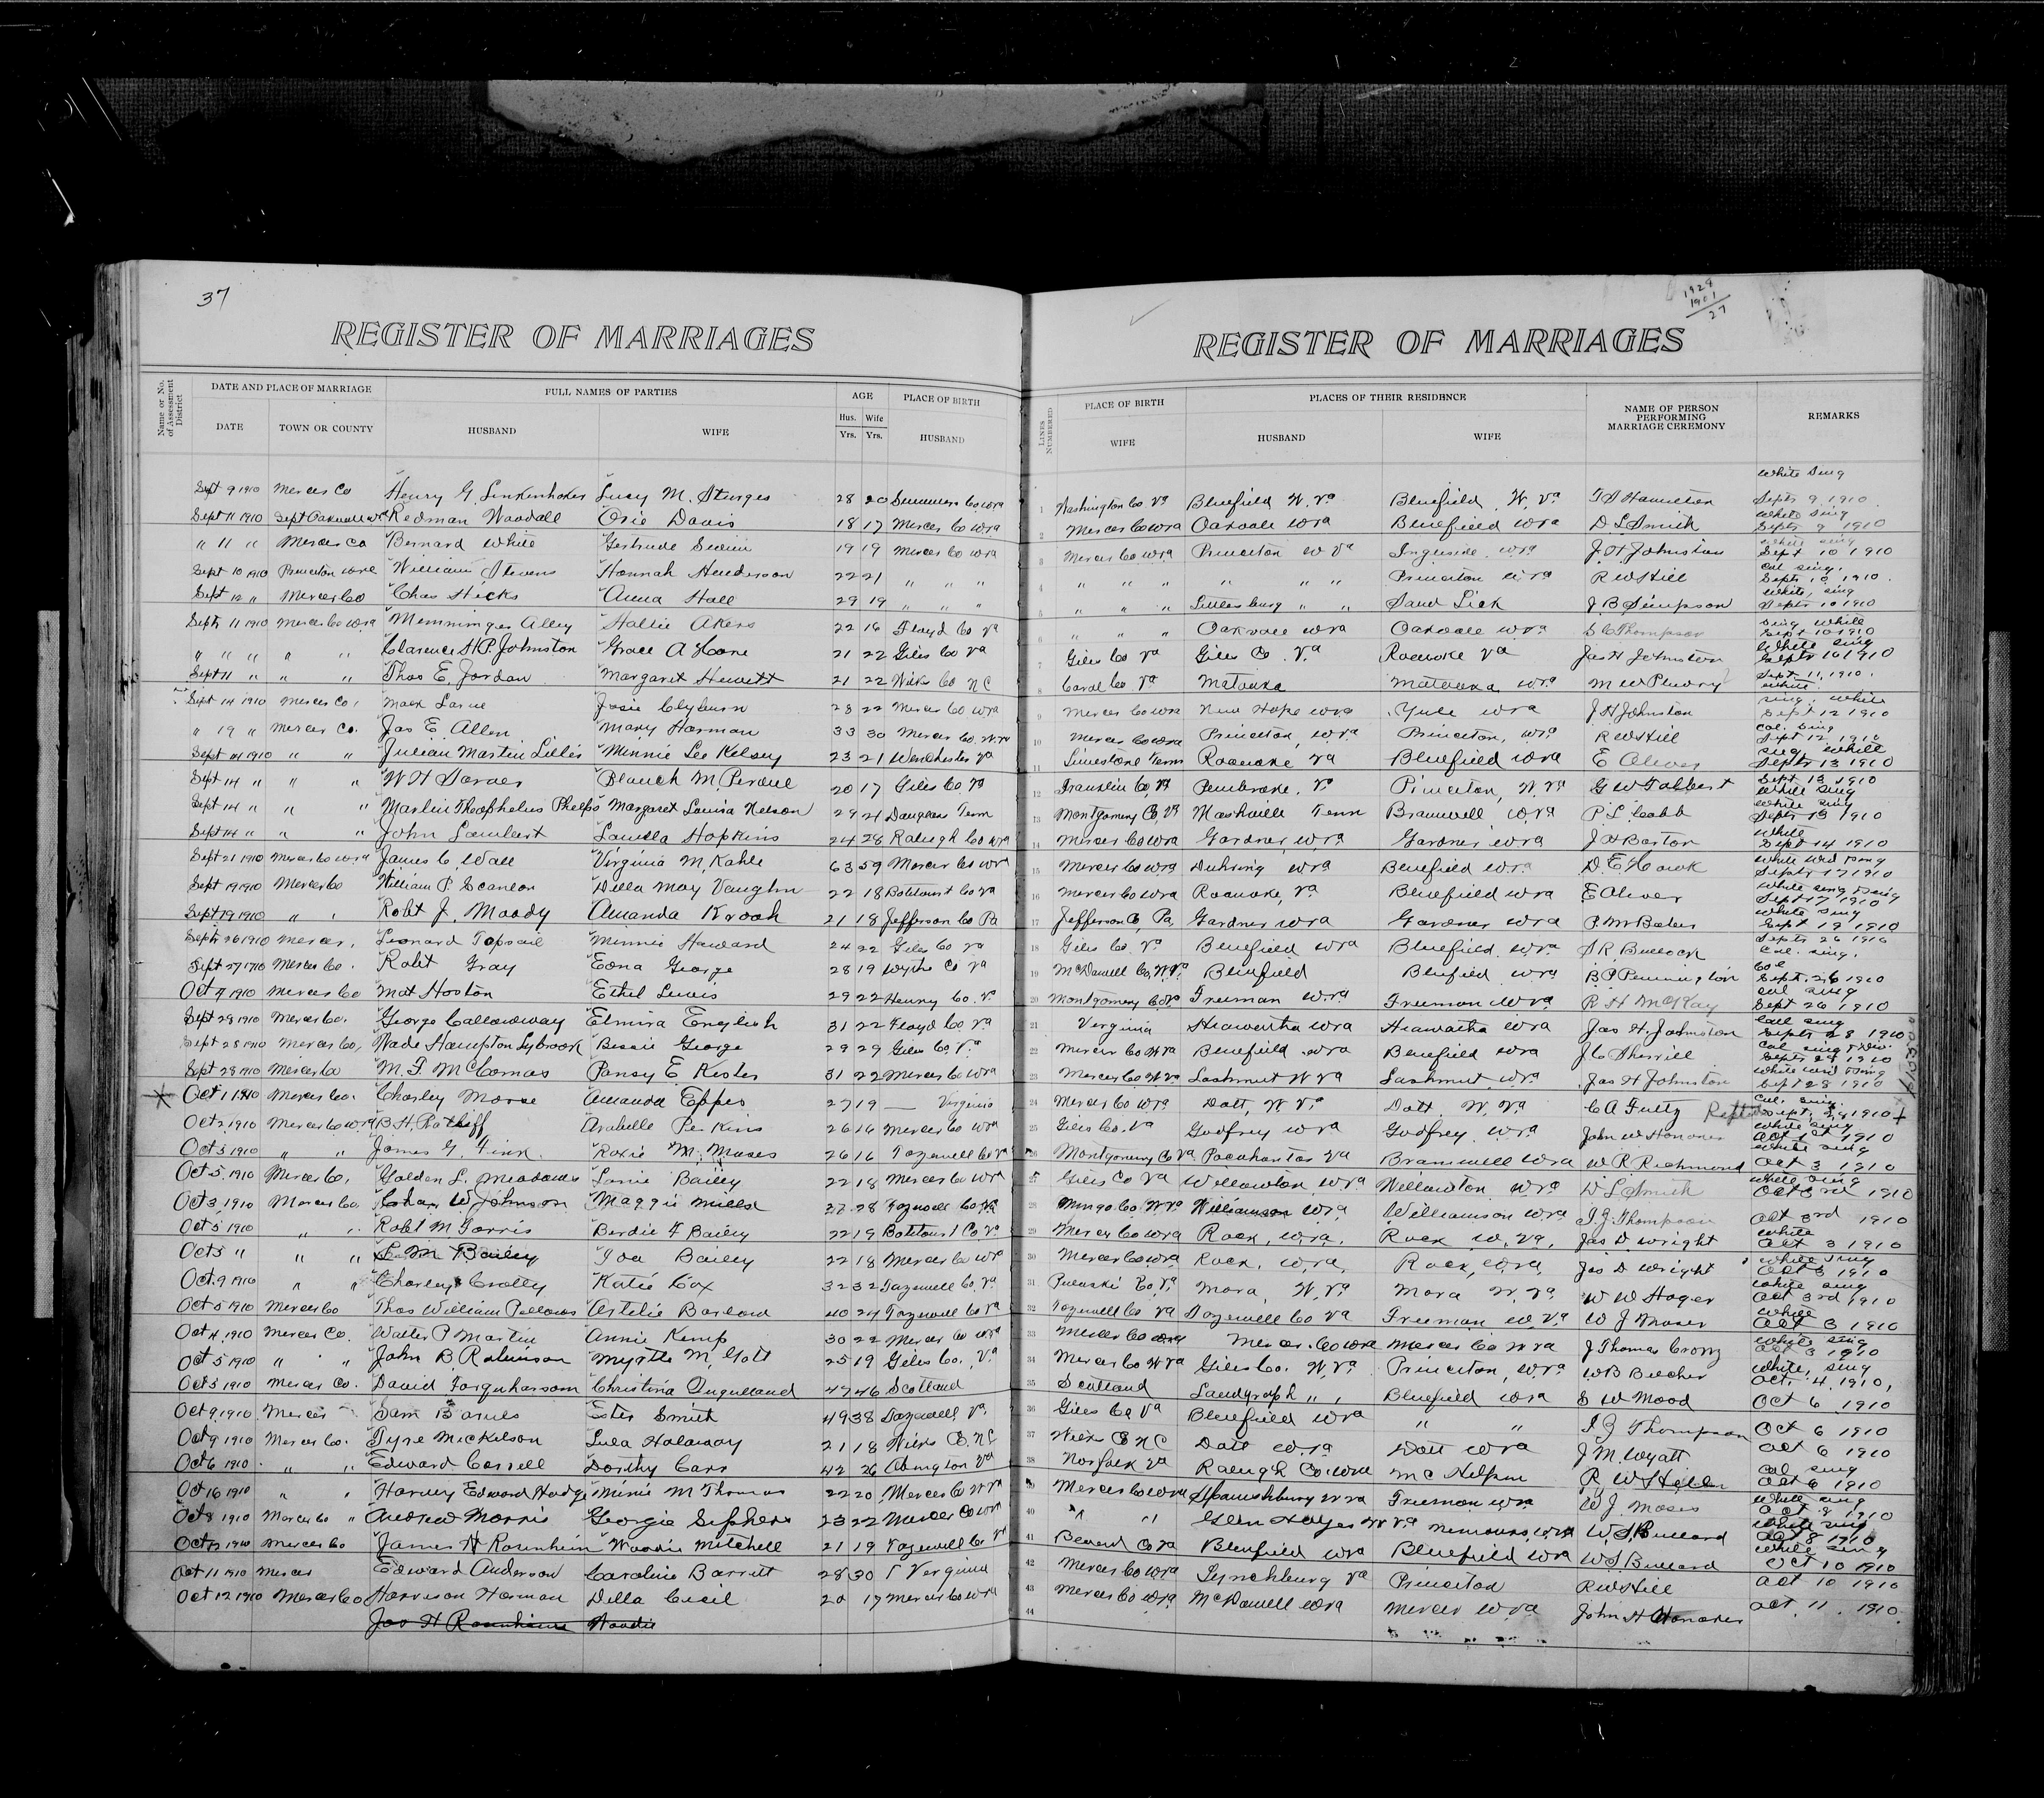 37
1929
1901
27
REGISTER OF MARRIAGES
REGISTER OF MARRIAGES
Name or No. of Assessment District
DATE AND PLACE OF MARRIAGE
FULL NAMES OF PARTIES
AGE
PLACE OF BIRTH
DATE
TOWN OR COUNTY
HUSBAND
WIFE
Hus. Wife
Yrs. Yrs.
HUSBAND
LINES NUMBERED
PLACE OF BIRTH
PLACES OF THEIR RESIDENCE
NAME OF PERSON PERFORMING MARRIAGE CEREMONY
REMARKS
WIFE
HUSBAND
WIFE
White Sing
Sept 9 1910 Mercer Co Henry G. Linkenhoker Lucy M. Sturges 28 20 Summers Co W Va 1 Washington Co Va Bluefield W. Va Bluefield W. Va Hamilton Septr 9 1910
Sept 11 1910 Redman Woodall Osie Davis 18 17 Mercer Co W Va 2 Mercer Co W Va Oakvale W Va Bluefield W Va D L Smith White Sing Septr 9 1910
" 11 " Mercer Co Bernard White Gertrude 19 19 Mercer Co W Va 3 Mercer Co W Va Princeton W Va Ingleside W Va J. H. Johnston White Sing Sept 10 1910
Sept 10 1910 Princeton William Stevens Hannah Henderson 22 21 " " " 4 " " " " " " Princeton W Va R W Hill Col Sing. Septr 10 1910.
Sept 12 " Mercer Co Chas Hicks Anna Hall 29 19 " " " 5 " " " Littlesburg " " Sand Lick J. B. Simpson White, Sing Septr 10 1910
Septr 11 1910 Mercer Co W Va Memminger Alley Hallie Akers 22 16 Floyd Co Va 6 " " " Oakvale W Va Oakvale W Va S C Thompson Sing White Sept 10 1910
" " " " " Clarence H. P. Johnston Grace A Hone 21 22 Giles Co Va 7 Giles Co Va Giles Co. Va Roanoke Va Jas H Johnston White Sing Septr 10 1910
Sept 11 " " " Thos E. Jordan Margaret Hewett 21 22 Wilks Co N C 8 Caral Co Va Matoaka Matoaka W Va Sept 11, 1910. White
Sept 14 1910 Mercer Co. Mack Josie Clyburn 28 22 Mercer Co W Va 9 Mercer Co W Va New Hope W Va Yule W Va J H Johnston Sing. White Sept 12 1910
" 19 " Mercer Co. Jas E Allen Mary Harman 33 30 Mercer Co. W Va 10 Mercer Co W Va Princeton, W Va Princeton, W Va R W Hill Col, Sing Sept 12 1910
Sept 14 1910 " " Julian Martin Lillis Minnie Lee Kelsey 23 21 Winchester Va 11 Limestone Tenn Roanoke Va Bluefield W Va E Oliver Sing, White Septr 13 1910
Sept 14 " " " W H Blanch M. Perdue 20 17 Giles Co. Va 12 Franklin Co, Va Pembroke. Va Princeton, W. Va G W Tabbert Sept 13 1910 White Sing
Sept 14 " " " Martin Theophelus Phelps Margaret Louisa Nelson 29 21 Tenn 13 Montgomery Co, Va Nashville Tenn Bramwell W. Va P L Cobb White Sing Septr 13 1910
Sept 14 " " " John Lambert Louella Hopkins 24 28 Raleigh Co W Va 14 Mercer Co W Va Gardner W. Va Gardner W Va J H Barton White Sept 14 1910
Sept 21 1910 Mercer Co W Va James C. Wall Virginia M. Kahle 63 59 Mercer Co W Va 15 Mercer Co W Va Duhring W Va Bluefield W Va White Wid & Sing Septr 17 1910
Sept 19 1910 Mercer Co William P. Scanlon Della May Vaughn 22 18 Botetourt Co Va 16 Mercer Co W Va Roanoke, Va Bluefield W Va E Oliver White Sing Sept 17 1910
Sept 19 1910 " " Robt J. Moody Amanda Krooh 21 18 Jefferson Co Pa 17 Jefferson Co, Pa, Gardner W Va Gardner W Va White Sing Sept 19 1910
Septr 26 1910 Mercer, Leonard Topsail Minnie Haward 24 22 Giles Co Va 18 Giles Co. Va Bluefield W Va Bluefield, W Va S R Bullock Septr 26 1910 Col. Sing.
Sept 27 1910 Mercer Co. Robt Gray Edna George 28 19 Wythe Co Va 19 McDowell Co, W Va Bluefield Bluefield W Va B P Pennington Col Sept, 26 1910
Oct 4 1910 Mercer Co Mat Hooton Ethel Lewis 29 22 Henry Co. Va 20 Montgomery Co Va Freeman W. Va Freeman W Va R H McKay Col Sing Sept 26 1910
Sept 29 1910 Mercer Co. George Calloway Elmira English 31 22 Floyd Co, Va 21 Virginia Hiawatha W Va Hiawatha W Va Jas H. Johnston Septr 28 1910
Sept 28 1910 Mercer Co, Wade Hampton Lybrook Bessie George 29 29 Giles Co. Va 22 Mercer Co W Va Bluefield W Va Bluefield W Va J. C. Sherrill Col Sing & Div. Septr 28 1910
Sept 28 1910 Mercer Co M. F. McComas Pansy E Kister 31 22 Mercer Co W Va 23 Mercer Co W Va Lashmeet W Va Lashmeet W. Va Jas H Johnston White Wid & Sing Sept 28 1910
Oct 1 1910 Mercer Co. Charley Morse Amanda Eppes 27 19 Virginia 24 Mercer Co W Va Dott, W. Va Dott W. Va C A Fultz Col. Sing. Sept. 29 1910
Oct 2 1910 Mercer Co W Va B. H. Ratliff Arabelle Perkins 26 16 Mercer Co W Va 25 Giles Co. Va Godfrey W Va Godfrey W Va John W White Sing Oct 1st 1910
Oct 5 1910 " " James G. Fink. Roxie M. Moses 26 16 Tazewell Co Va 26 Montgomery Co Va Pocahontas Va Bramwell W Va W R Richmond White Sing Oct 3 1910
Oct 5 1910 Mercer Co. Golden L. Meadows Bailey 22 18 Mercer Co W Va Giles Co Va Willowton W Va Willowton W Va D L Smith White Sing Oct 3rd 1910
Oct 3, 1910 Mercer Co. W Johnson Maggie 27 28 Tazewell Co, Va 28 Mingo Co, W Va Williamson W Va Williamson W Va T. J. Thompson Oct 3rd 1910
Oct 5 1910 " " Robt M Farris Birdie F Bailey 22 19 Botetourt Co Va 29 Mercer Co W Va Rock, W. Va. Rock W. Va. Jas D Wright White Oct 3 1910
Oct 5 " " " L M Bailey Ida Bailey 22 18 Mercer Co W Va 30 Mercer Co W Va Rock, W. Va, Rock, W Va, Jas D Wright White Sing Oct 3 1910
Oct. 9 1910 " " Charley Crotty Katie Cox 32 32 Tazewell Co, Va 31 Pulaski Co, Va Mora, W. Va Mora W. Va W W Hager White Sing Oct 3rd 1910
Oct 5 1910 Mercer Co Thos William Barlow 40 24 Tazewell Co Va 32 Tazewell Co Va Tazewell Co Va Freeman W. Va W J Moses White Oct 3 1910
Oct 4, 1910 Mercer Co. Walter P Martin Annie Kemp 30 22 Mercer Co W Va 33 Mercer Co Mercer Co W Va Mercer Co W Va J Thomas White Sing Oct 3 1910
Oct 5 1910 " " John B. Robinson Myrtle M. Gott 25 19 Giles Co., Va 34 Mercer Co W Va Giles Co. W. Va Princeton, W. Va W B Beecher White, Sing Oct. 4, 1910,
Oct 5 1910 Mercer Co. David Farquharson Christina 47 46 Scotland 35 Scotland Landgraph " " Bluefield W Va S W Mood Oct 6 1910
Oct 9 1910 Mercer Sam Ester Smith 49 38 Tazewell Va 36 Giles Co Va Bluefield W Va " " T. J. Thompson Oct 6 1910
Oct 9 1910 Mercer Co. Tyre Mickelson Lula Holaway 21 18 Wilks Co. N C 37 Wilks Co N C Dott W. Va Dott W Va J. M. Wyatt Oct 6 1910
Oct 6 1910 " " Edward Dorithy Carr 42 26 Abington Va 38 Norfolk Va Raleigh Co W Va R W Hill Col Sing Oct 6 1910
Oct 16 1910 " " Harvey Edward Hodge Minie M Thomas 22 20 Mercer Co W Va 39 Mercer Co W Va Spanishburg W Va Freeman W Va W J Moses White Sing Oct 8 1910
Oct 8 1910 Mercer Co " Andrew Morris Georgie Sephers 23 22 Mercer Co W Va 40 " " Glen Hayes W Va Nemours, W Va W. S. Bullard White Sing Oct 8 1910
Oct 12 1910 Mercer Co James H Rosenheim Woodie Mitchell 21 19 Tazewell Co Va 41 Bluefield W Va Bluefield W Va W S Bullard White Sing Oct 10 1910
Oct 11 1910 Mercer Edward Anderson Caroline Barrett 28 30 Virginia 42 Mercer Co W Va Lynchburg Va Princeton R W Hill Oct 10 1910
Oct 12 1910 Mercer Co Harrison Harman Della Cecil 20 17 Mercer Co W Va 43 Mercer Co W Va McDowell W Va Mercer W Va John H Oct. 11. 1910.
44
Jas H Rosenheim Woodie